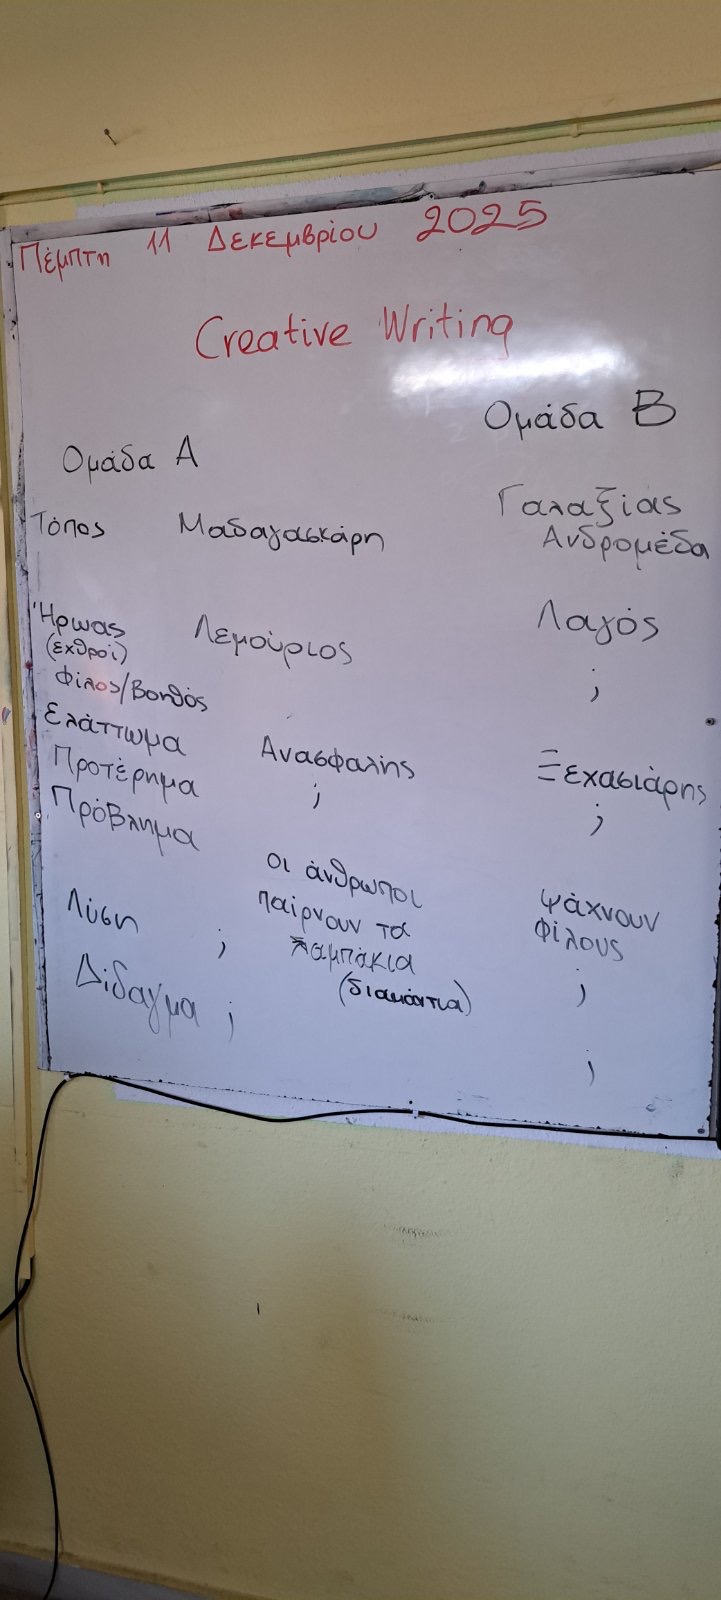 Πέμπτη 11 Δεκεμβρίου 2025
Creative Writing
Ομάδα Α Ομάδα Β
Τόπος Μαδαγασκάρη Γαλαξίας
Ανδρομέδα
Ήρωας Λεμούριος Λαγός
(εχθροί)
Φίλος/Βοηθός ;
Ελάττωμα Ανασφαλής Ξεχασιάρης
Προτέρημα ; ;
Πρόβλημα οι άνθρωποι ψάχνουν
παίρνουν τα φίλους
λαμπάκια
(διαμάντια)
Λύση ; ;
Δίδαγμα ; ;